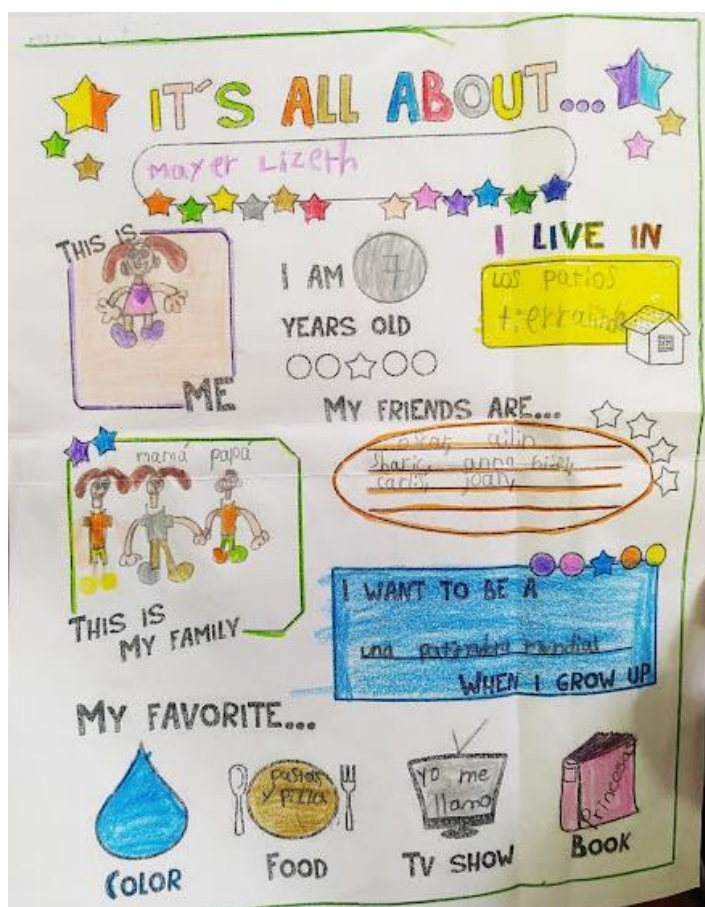 IT'S ALL ABOUT...
mayer Lizeth
THIS IS
ME
I AM 7
YEARS OLD
I LIVE IN
Los patios
tierralinda
MY FRIENDS ARE...
oscar, ailin
sharic, anna
carlis, joan,
mamá papá
THIS IS
MY FAMILY
I WANT TO BE A
una patinadora mundial
WHEN I GROW UP
MY FAVORITE...
COLOR
pastas
y pizza
FOOD
yo me
llamo
TV SHOW
Princesas
BOOK